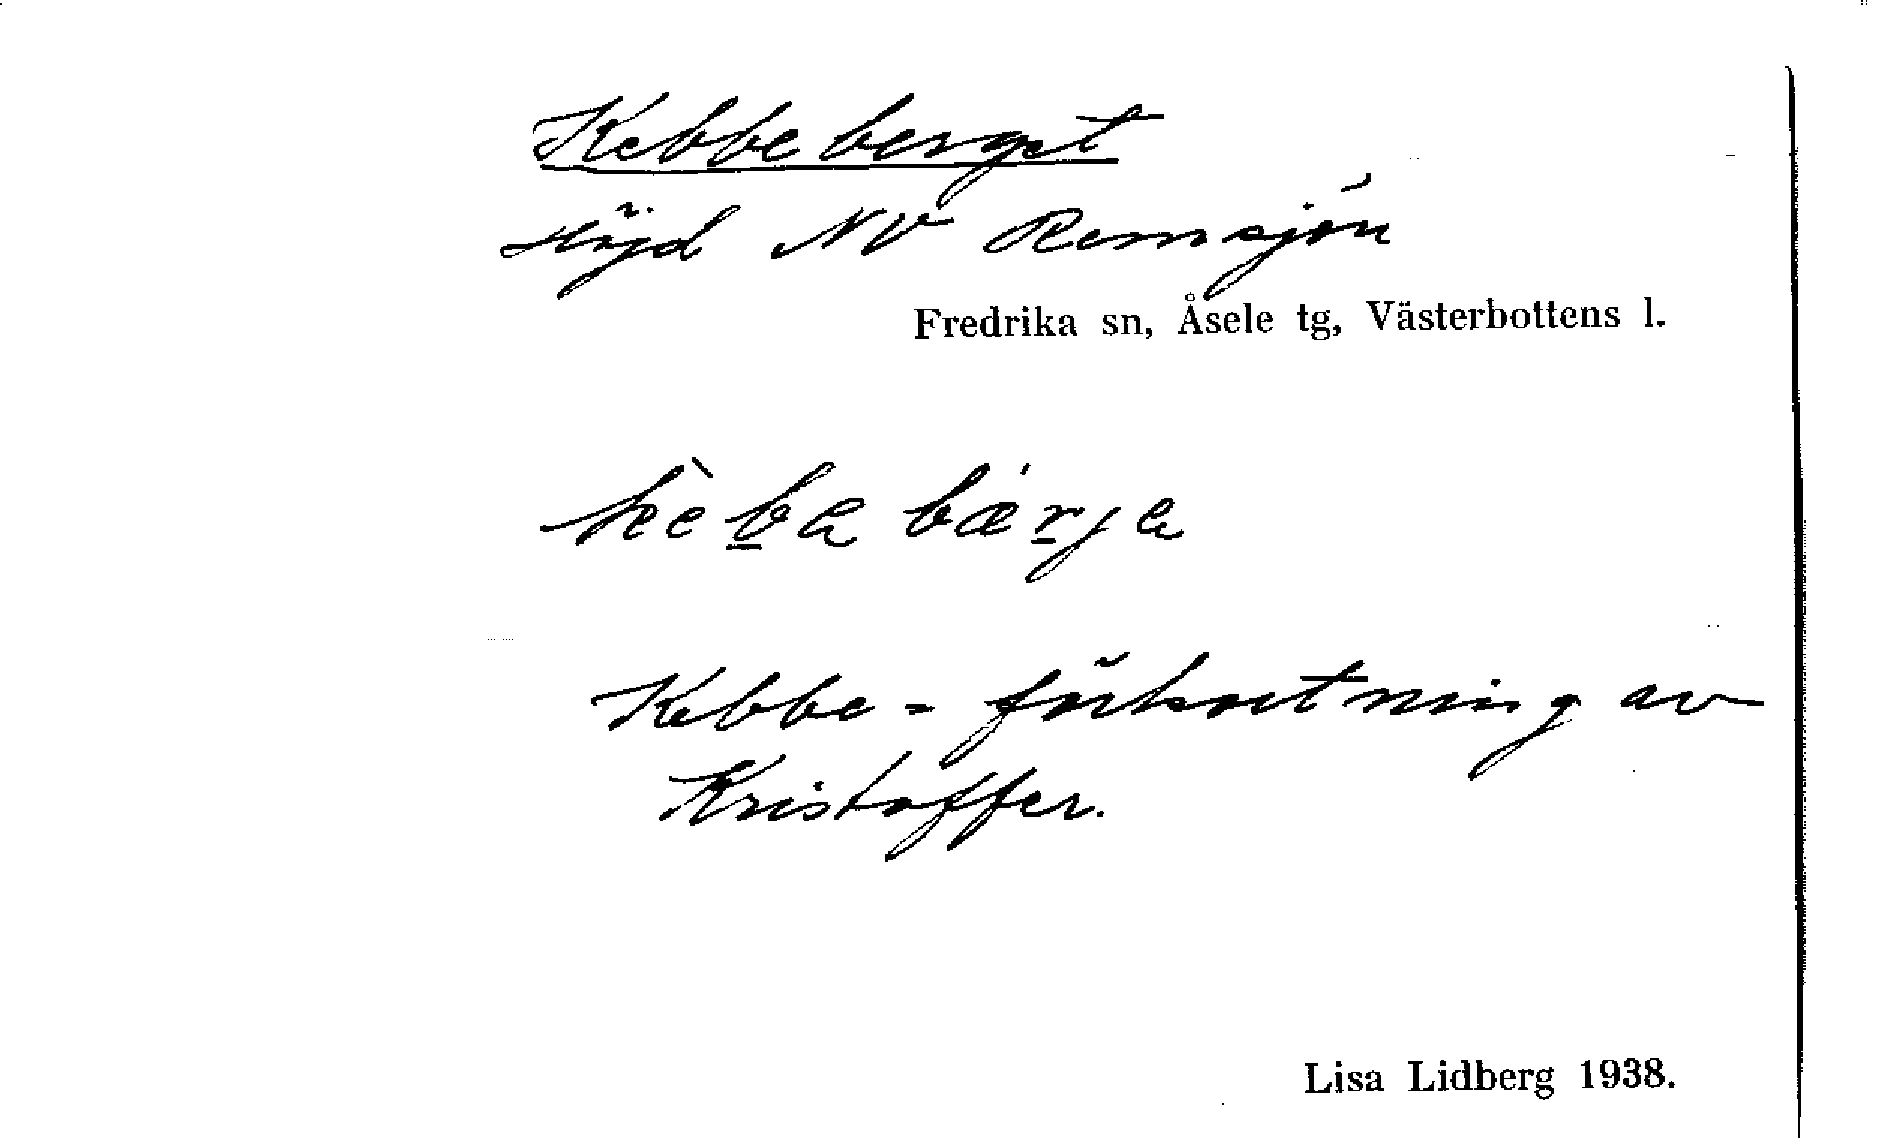 Kebbeberget
Höjd NV Remsjön
Fredrika sn, Åsele tg, Västerbottens l.
kèba bærja
Kebbe = förkortning av
Kristoffer.
Lisa Lidberg 1938.